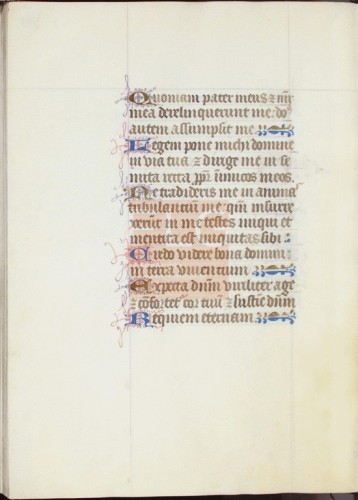 Quoniam pater meus ⁊ mr̄
mea derelinquerunt me: dn̄s
autem assumpsit me
Legem pone michi domine
in via tua ⁊ dirige me in se
mita recta ppt̄ inimicos meos.
Ne tradideris me in animas
tribulantium me: qm̄ insurre
xerūt in me testes iniqui et
mentita est iniquitas sibi
Credo videre bona domini
in terra viventium
Expecta dn̄m viriliter age
⁊ cōfortet̄ cor tuū ⁊ sustine dn̄m
Requiem eternam